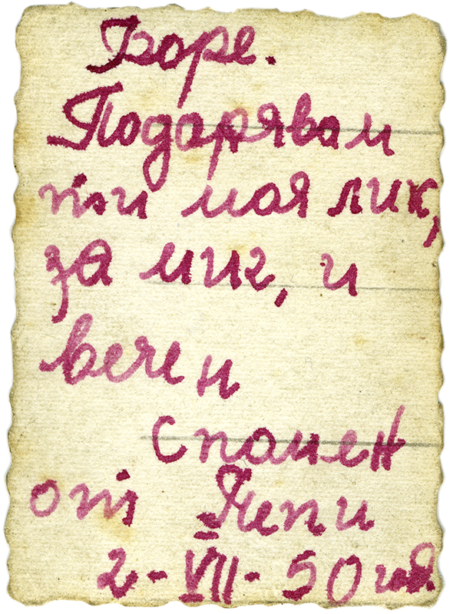 Боре.
Подарявам
ти моя лик,
за миг, и
вечен
спомен
от Пепи
2-VII-50 год.